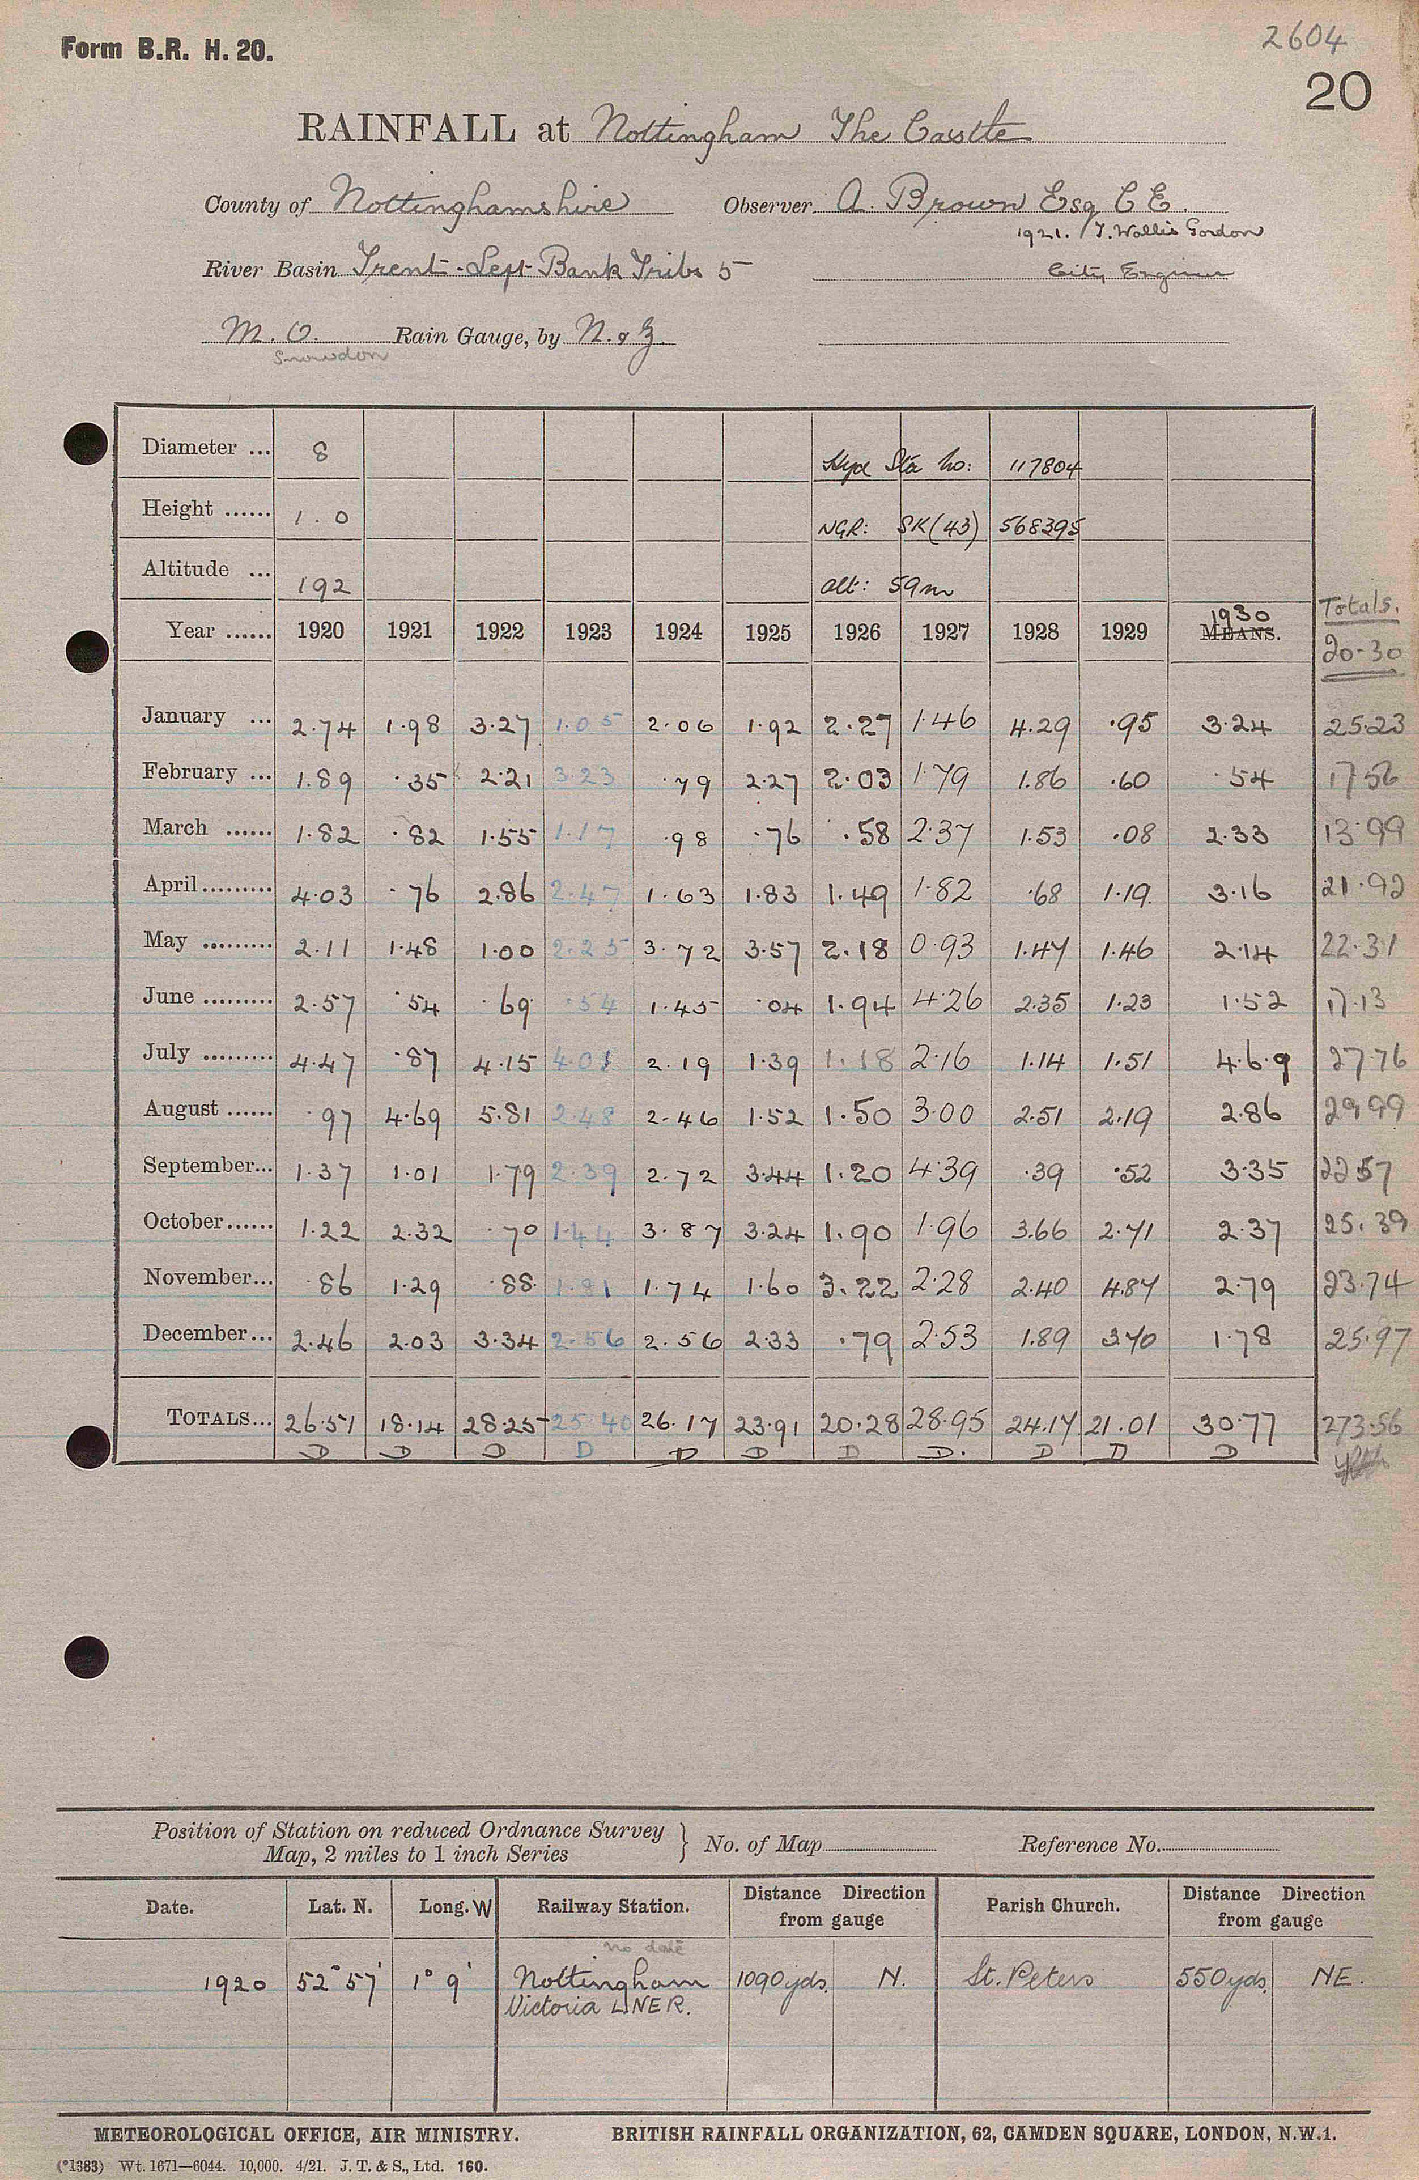 Form B.R. H. 20.
2604
20
RAINFALL at Nottingham The Castle
County of Nottinghamshire Observer A. Brown Esq C E.
1921. T. Wallis Gordon
River Basin Trent-Left Bank Tribs 5 City Engineer
M. O. Rain Gauge, by N. & Z.
Snowdon
Diameter ... 8 Hyd Sta no: 117804
Height ...... 1 . 0 NGR: SK(43) 568395
Altitude ... 192 alt: 59m
Totals.
Year ...... 1920 1921 1922 1923 1924 1925 1926 1927 1928 1929 1930 MEANS. 20-30
January ... 2.74 1.98 3.27 1.05 2.06 1.92 2.27 1.46 4.29 .95 3.24 25.23
February ... 1.89 .35 2.21 3.23 .79 2.27 2.03 1.79 1.86 .60 .54 17.56
March ...... 1.82 .82 1.55 1.17 .98 .76 .58 2.37 1.53 .08 2.33 13.99
April ......... 4.03 .76 2.86 2.47 1.63 1.83 1.49 1.82 .68 1.19 3.16 21.92
May ......... 2.11 1.48 1.00 2.25 3.72 3.57 2.18 0.93 1.47 1.46 2.14 22.31
June ......... 2.57 .54 .69 .54 1.45 .04 1.94 4.26 2.35 1.23 1.52 17.13
July ......... 4.47 .87 4.15 4.01 2.19 1.39 1.18 2.16 1.14 1.51 4.69 27.76
August ...... .97 4.69 5.81 2.48 2.46 1.52 1.50 3.00 2.51 2.19 2.86 29.99
September... 1.37 1.01 1.79 2.39 2.72 3.44 1.20 4.39 .39 .52 3.35 22.57
October...... 1.22 2.32 .70 1.44 3.87 3.24 1.90 1.96 3.66 2.71 2.37 25.39
November... .86 1.29 .88 1.81 1.74 1.60 3.22 2.28 2.40 4.87 2.79 23.74
December... 2.46 2.03 3.34 2.56 2.56 2.33 .79 2.53 1.89 3.70 1.78 25.97
TOTALS... 26.51 18.14 28.25 25.40 26.17 23.91 20.28 28.95 24.17 21.01 30.77 273.56
D D D D D D D D. D D D
Position of Station on reduced Ordnance Survey
Map, 2 miles to 1 inch Series } No. of Map Reference No.
Date. Lat. N. Long. W Railway Station. Distance Direction from gauge Parish Church. Distance Direction from gauge
no date
1920 52° 57' 1° 9' Nottingham 1090 yds. N. St. Peters 550 yds. NE.
Victoria LNER.
METEOROLOGICAL OFFICE, AIR MINISTRY. BRITISH RAINFALL ORGANIZATION, 62, CAMDEN SQUARE, LONDON, N.W.1.
(*1383) Wt. 1671—6044. 10,000. 4/21. J. T. & S., Ltd. 160.